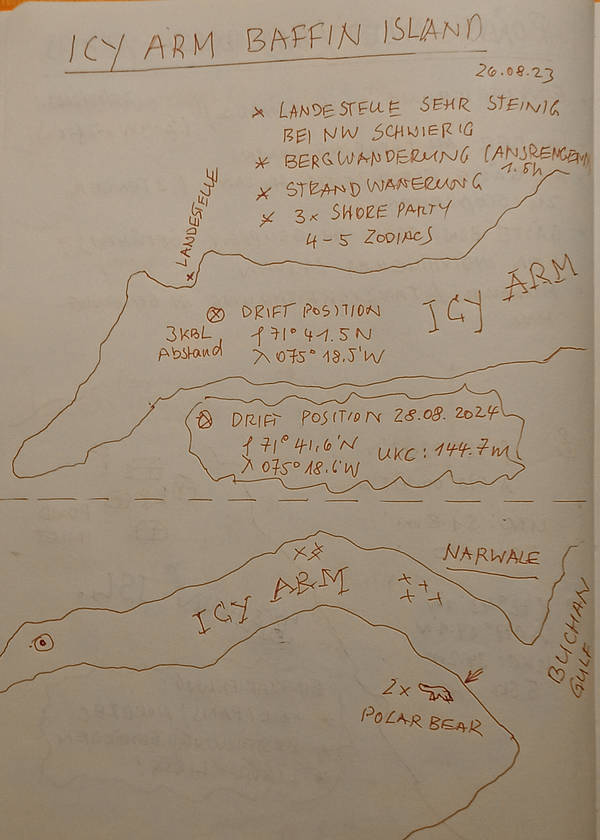 ICY ARM BAFFIN ISLAND
26.08.23
* LANDESTELLE SEHR STEINIG
BEI NW SCHWIERIG
* BERGWANDERUNG (ANSRENGEND)
1.5h
* STRANDWANERUNG
* 3x SHORE PARTY
4-5 ZODIACS
LANDESTELLE
ICY ARM
⊗ DRIFT POSITION
3KBL
Abstand
φ 71° 41.5 N
λ 075° 18.5'W
⊗ DRIFT POSITION 28.08.2024
φ 71° 41,6'N
λ 075° 18.6'W
UKC: 144.7m
NARWALE
ICY ARM
BUCHAN
GULF
2x
POLAR BEAR